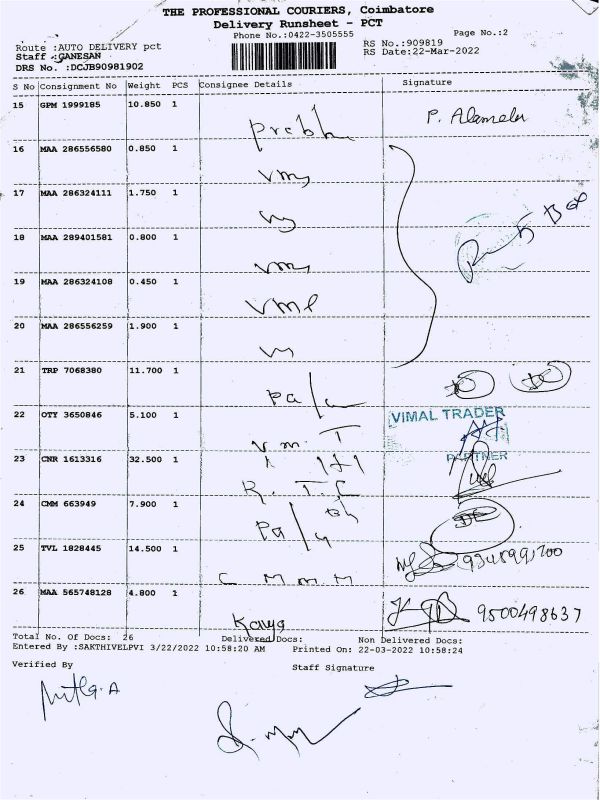 THE PROFESSIONAL COURIERS, Coimbatore
Delivery Runsheet - PCT
Phone No.:0422-3505555
Page No.:2
Route :AUTO DELIVERY pct
RS No.:909819
Staff :GANESAN
RS Date:22-Mar-2022
DRS No. :DCJB90981902
S No Consignment No Weight PCS Consignee Details Signature
15 GPM 1999185 10.850 1
P. Alamelu
16 MAA 286556580 0.850 1
17 MAA 286324111 1.750 1
18 MAA 289401581 0.800 1
19 MAA 286324108 0.450 1
20 MAA 286556259 1.900 1
21 TRP 7068380 11.700 1
22 OTY 3650846 5.100 1
VIMAL TRADER
PARTNER
23 CNR 1613316 32.500 1
24 CMM 663949 7.900 1
25 TVL 1828445 14.500 1
26 MAA 565748128 4.800 1
Kavya 9500498637
Total No. Of Docs: 26 Delivered Docs: Non Delivered Docs:
Entered By :SAKTHIVELPVI 3/22/2022 10:58:20 AM Printed On: 22-03-2022 10:58:24
Verified By Staff Signature